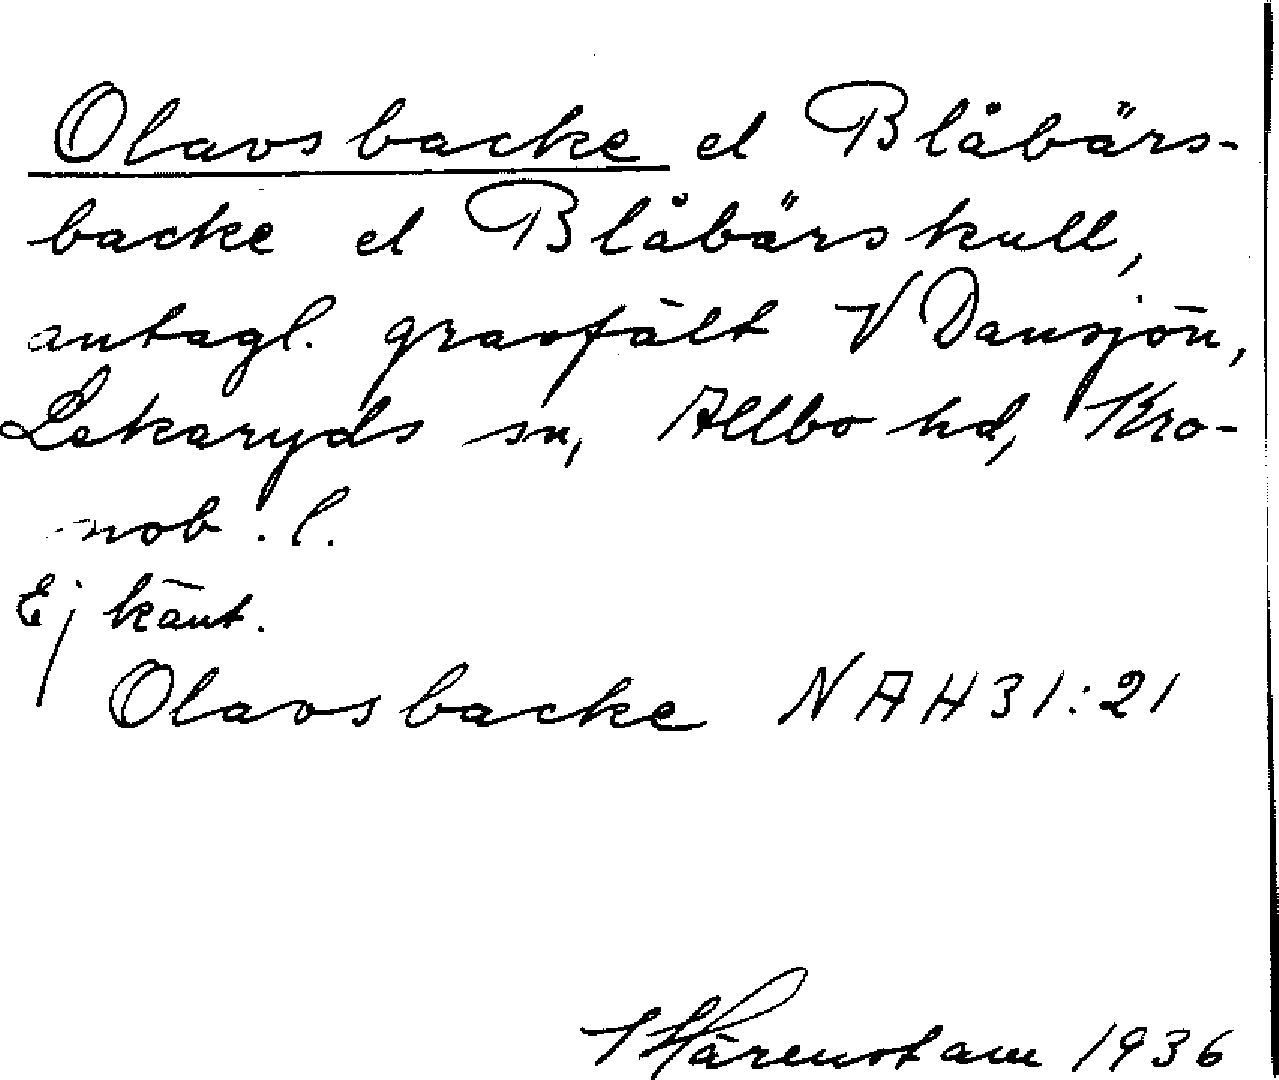 Olavsbacke el Blåbärs-
backe el Blåbärskull,
antagl. gravfält V Dansjön,
Lekaryds sn, Allbo hd, Kro-
nob. l.
Ej känt.
Olavsbacke NAH31:21
Härenstam 1936